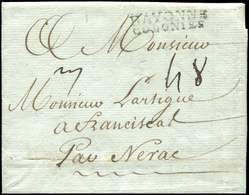 BAYONNE
COLONIES
A Monsieur
48
Monsieur Lartigue
a franciscat
Par Nerac